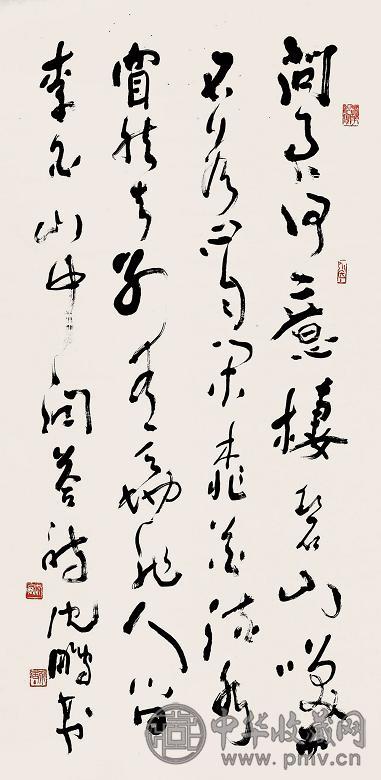 問余何意棲碧山笑而
不答心自閑桃花流水
窅然去別有天地非人間
李白山中問答詩沈鵬書
中华收藏网
www.pmv.cn